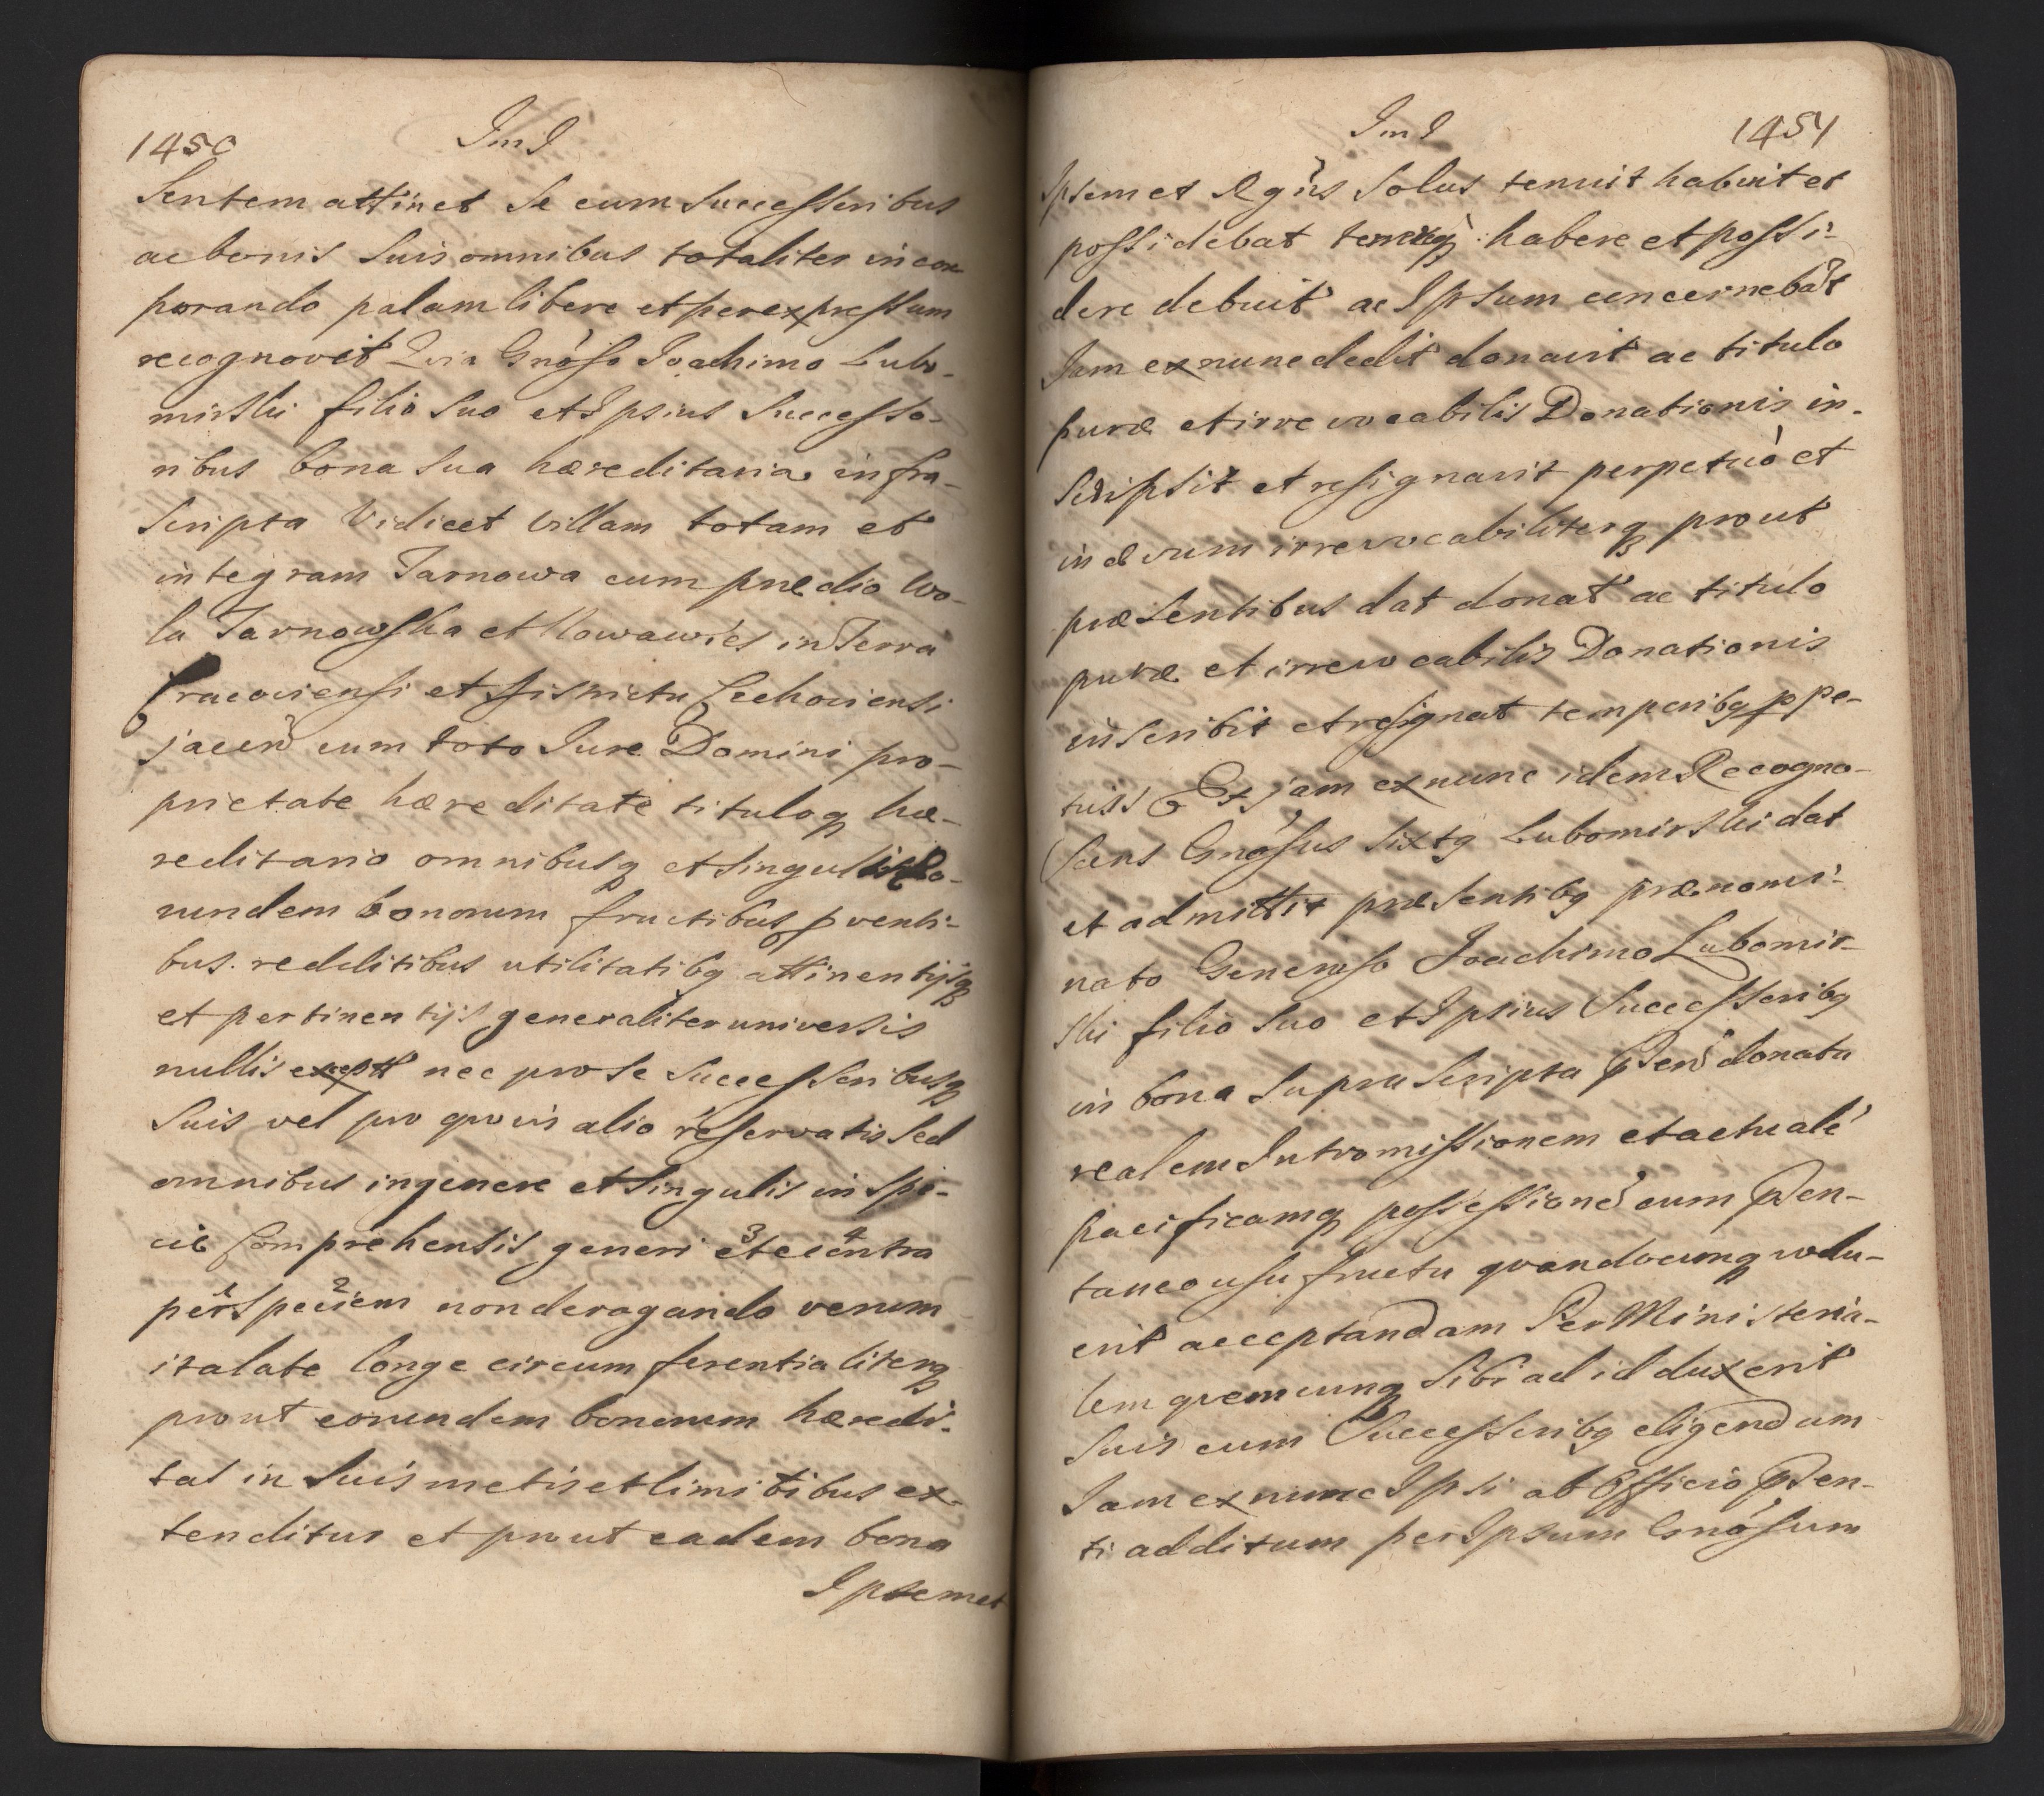 1450
ImI
sentem attinet se cum Successoribus
ac bonis suis omnibus totaliter incor
porando palam libere et per expressum
recognovit Quia Gnoso Joachimo Lubo-
mirski filio suo et Ipsius Successo-
ribus bona sua hæreditaria infra-
scripta Vidicet Villam totam et
integram Tarnawa cum prædio Wo-
la Tarnowska et Nowawies in Terra
Cracoviensi et Districtu Lechoviensi
jacen cum toto Jure Domini pro-
prietate hæreditate tituloq hæ-
reditario omnibusq et singulis Eo-
rundem bonorum fructibus pventi-
bus. redditibus utilitatibq attinentijsq
et pertinentijs generaliter universis
nullis exceptt nec pro se Successoribusq
Suis vel pro quovis alio reservatis Sed
omnibus in genere et singulis in spe-
cie Comprehensis generi 3 et e 4 contra
1 per 2 Speciem non derogando verum
ita late longe circumferentialiterq
prout eorundem bonorum hæredi-
tas in suis metis et limitibus ex-
tenditur et prout eadem bona
Ipsemet
ImI
1451
Ipsemet Rgns Solus tenuit habuit et
possidebat tenereq habere et possi-
dere debuit ac Ipsum concernebat
Jam ex nunc dedit donavit ac titulo
puræ et irrevocabilis Donationis in-
scripsit et resignavit perpetuò et
in ævum irrevocabiliterq prout
præsentibus dat donat ac titulo
puræ et irrevocabilis Donationis
inscribit et resignat temporibq ppe-
tuis Et jam ex nunc idem Recogno-
scens Gnosus Sixtq Lubomirski dat
et admittit præsentibq prænomi-
nato Generoso Joachimo Lubomir-
ski filio suo et Ipsius Successoribq
in bona Supra scripta psen donata
realem Intromissionem et actuale
pacificamq possessione cum psen-
taneo usu fructu quandocunq volu-
erit acceptandam Per Ministeria-
lem quemcunq Sibi ad id duxerit
Suis cum Successoribq eligendum
Jam ex nunc Ipsi ab Officio psen-
ti additum per Ipsum Gnosum